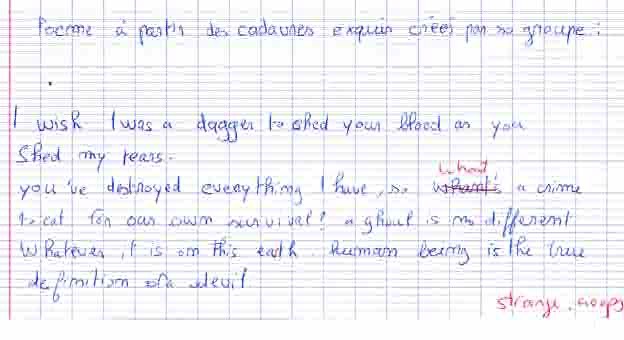 Poeme à partir des cadavres exquis créés par ce groupe :
I wish I was a dagger to shed your blood as you
Shed my tears.
What
you've destroyed everything I have, so what's a crime
to eat for our own survival! a ghoul is no different
Whatever, it is on this earth. human being is the true
definition of a devil
strange, creepy